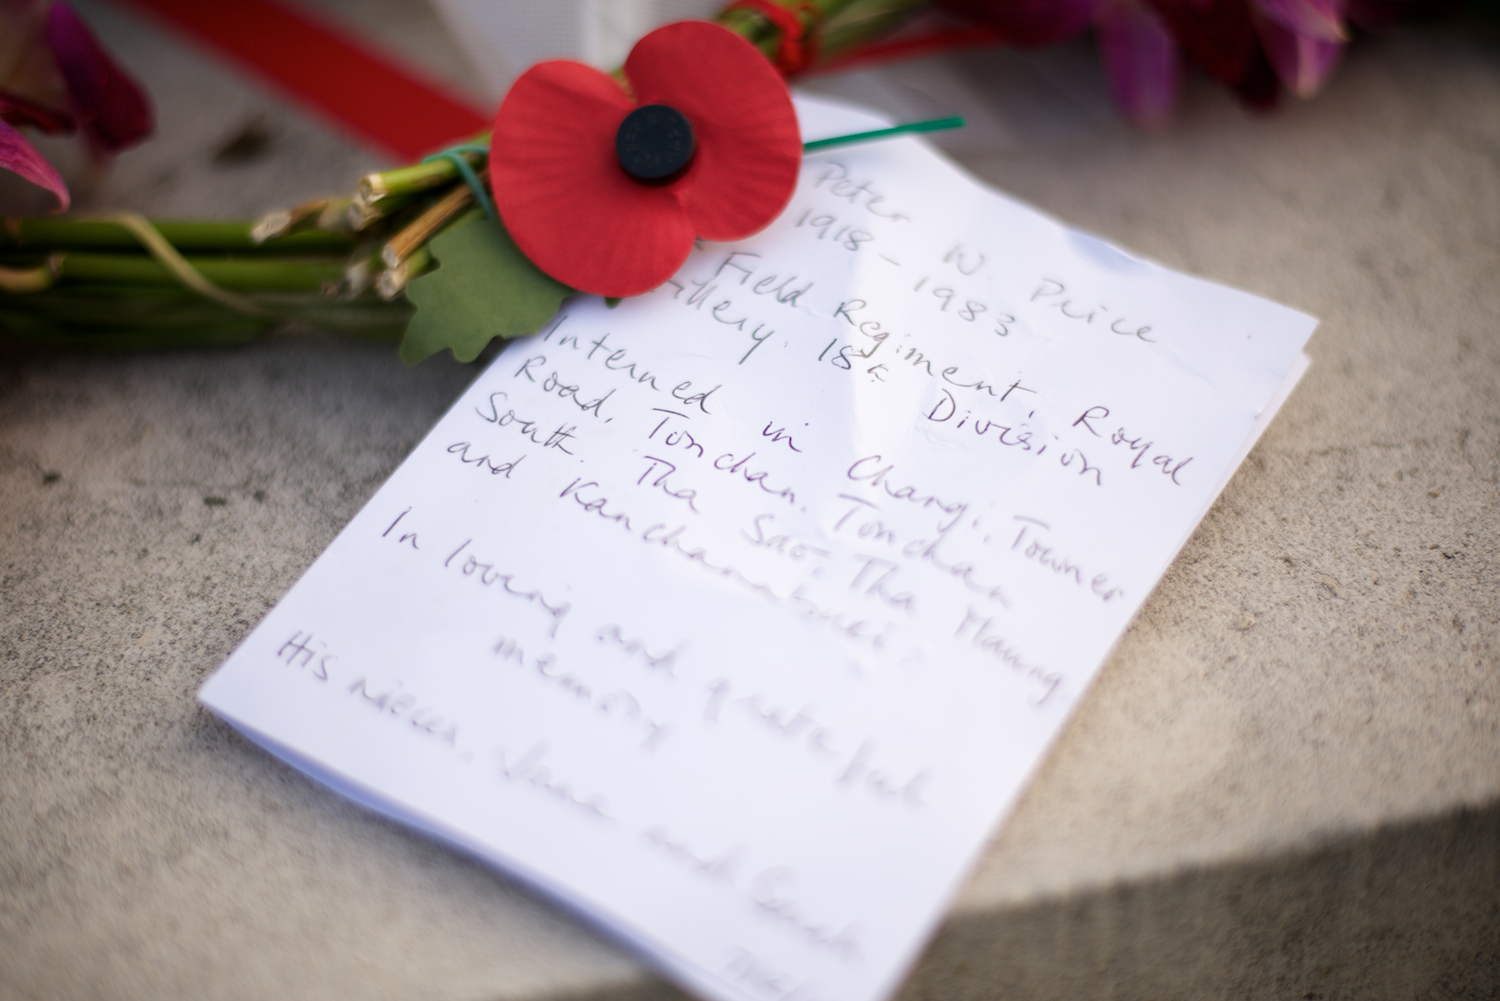 Peter W Price
1918 - 1983
Field Regiment, Royal
illery. 18th Division
Interned in Changi, Towner
Road, Tonchan, Tonchan
South. Tha Sao, Tha Maung
and Kanchanaburi.
In loving and grateful
memory
His nieces, and Sarah